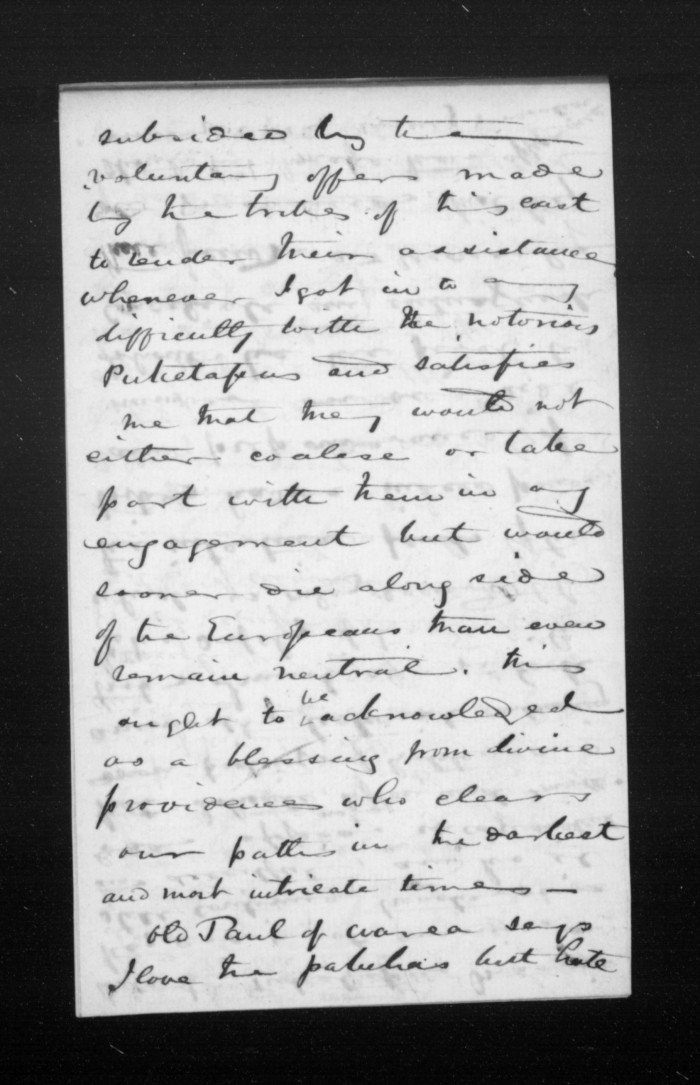 subsided by the
voluntary offers made
by the tribes of this east
to tender their assistance
whenever I got in to any
difficulty with the notorious
Puketapus and satisfies
me that they would not
either coalese or take
part with them in any
engagement but would
sooner die along side
of the Europeans than even
remain neutral. this
ought to be acknowledged
as a blessing from divine
providence who clears
our path in the darkest
and most intricate times —
old Paul of warea says
I love the pakehas but hate